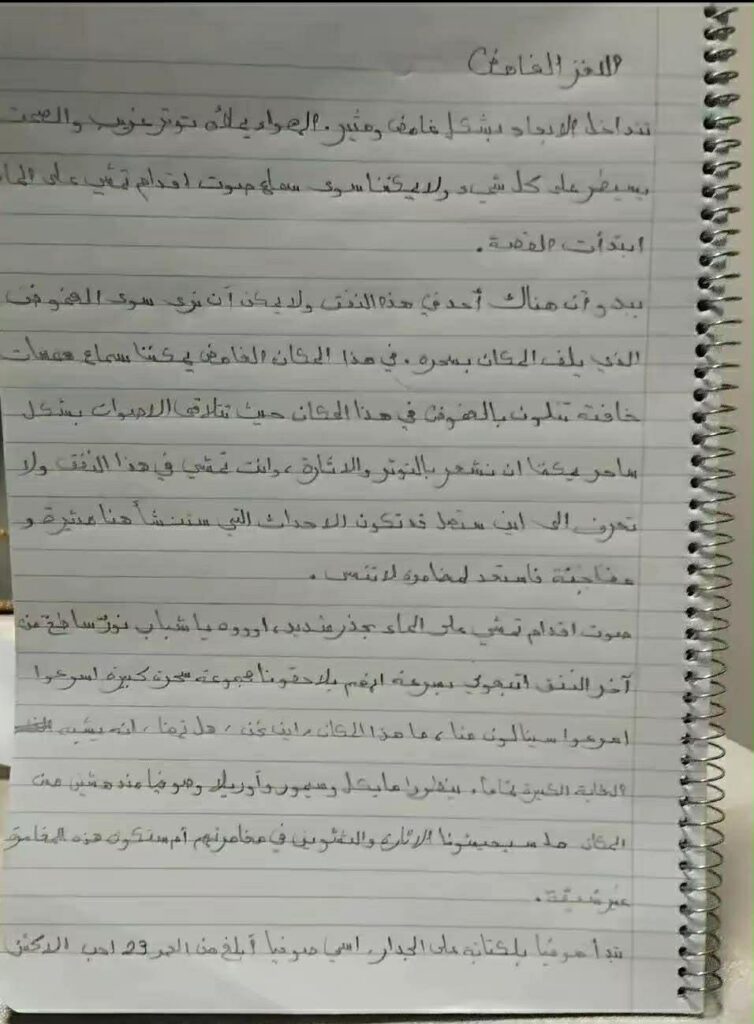 الافق الغامض
تتداخل الابعاد بشكل غامض ومثير. الهواء يملأه توتر غريب والصمت
يسيطر على كل شيء ولا يمكننا سوى سماع صوت اقدام تمشي على الماء
ابتدأت القصة.
يبدو أن هناك أحد في هذا النفق ولا يمكن أن نرى سوى الغموض
الذي يلف المكان بسحره. في هذا المكان الغامض يمكننا سماع همسات
خافتة تتلون بالغموض في هذا المكان حيث تتلاقى الاصوات بشكل
ساحر يمكنا ان نشعر بالتوتر والاثارة، وانت تمشي في هذا النفق ولا
تعرف الى اين ستصل قد تكون الاحداث التي ستنشأ هنا مثيرة و
مفاجئة فاستعد لمغامرة لا تنس.
صوت اقدام تمشي على الماء بحذر شديد، اوووه يا شباب نورٌ ساطع من
آخر النفق اتبعوني بسرعة انهم يلاحقونا مجموعة سحرة كبيرة اسرعوا
اسرعوا سينالون منا، ما هذا المكان، اين نحن، هل نجنا، انه يشبه
الغابة الكبيرة تماماً. ينظروا مايكل وسيمور وأوريلا وصوفيا مندهشين من
المكان هل سيعيشونا الاثارة والتشويق في مغامرتهم أم ستكون هذه المغامرة
غير شيقة.
تبدأ صوفيا بلكتابة على الجدار، اسمي صوفيا أبلغ من العمر 23 احب الاكشن